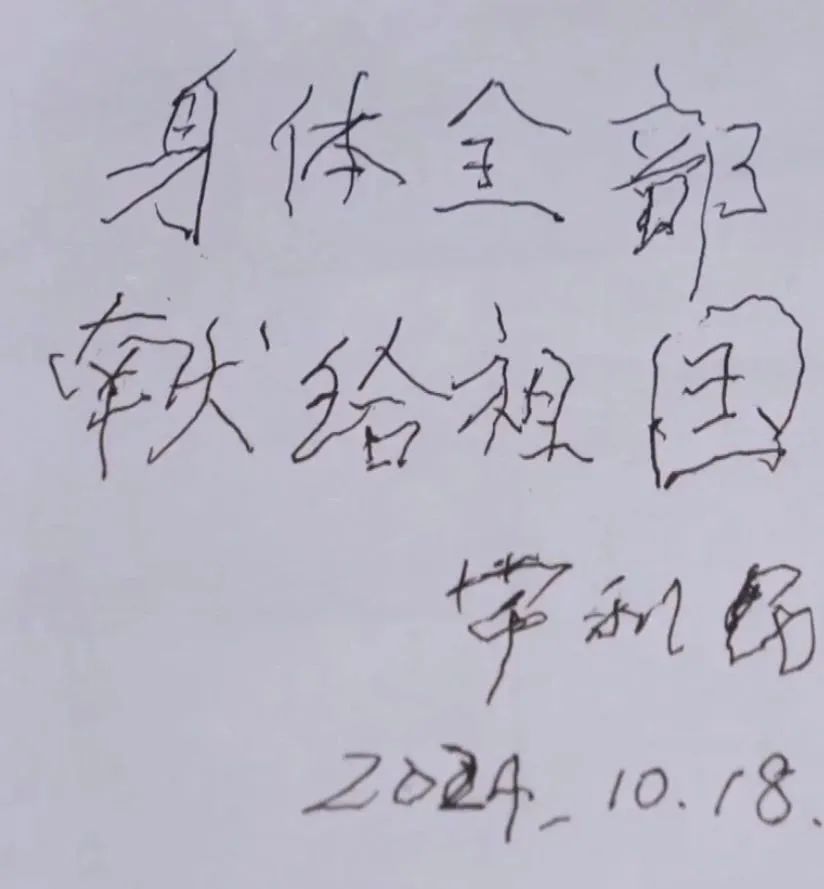 身体全部
献给祖国
利
2024.10.18.